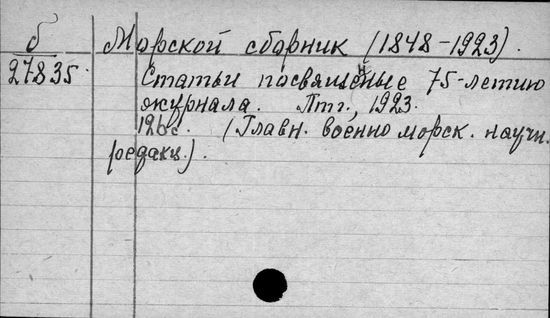 б Морской сборник (1848-1923).
27835. Статьи посвящённые 75-летию
журнала. Птг., 1923.
126с. (Главн. военно морск. научн.
редакц.).